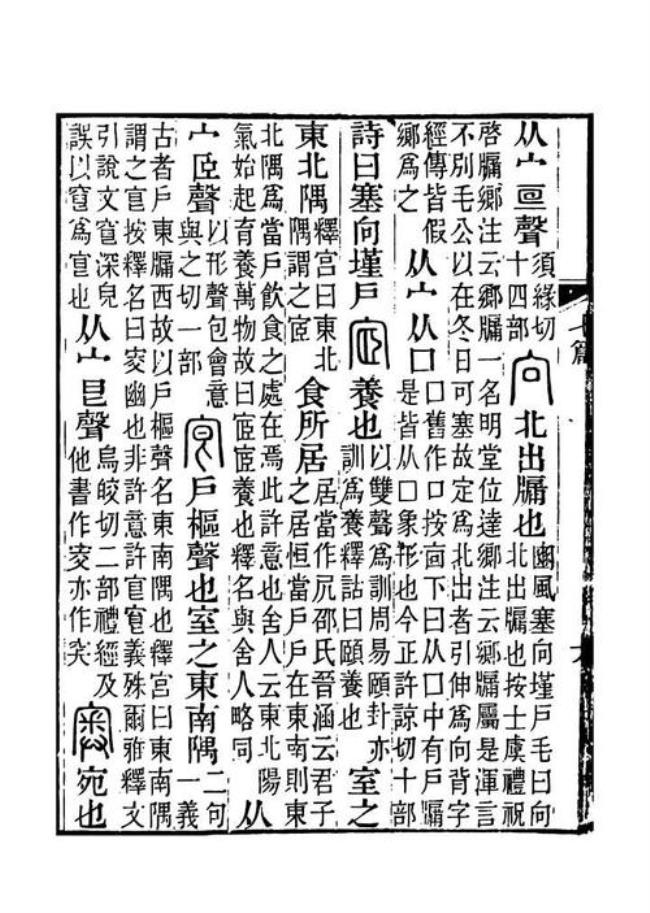 从宀亘聲須緣切十四部向北出牖也豳風塞向墐戶毛曰向北出牖也按士虞禮祝
啓牖鄉注云鄉牖一名明堂位達鄉注云鄉牖屬是渾言不別毛公以在冬日可塞故定爲北出者引伸爲向背字
經傳皆假鄉爲之从宀从口口舊作口按㐭下曰从口中有戶牖是皆从口象形也今正許諒切十部
詩曰塞向墐戶宧養也以雙聲爲訓周易頤卦亦訓爲養釋詁曰頤養也室之
東北隅釋宮曰東北隅謂之宧食所居居當作凥邵氏晉涵云君子之居恒當戶戶在東南則東
北隅爲當戶飲食之處在焉此許意也舍人云東北陽氣始起育養萬物故曰宧宧養也釋名與舍人略同从
宀𦣞聲以形聲包會意與之切一部㝔戶樞聲也室之東南隅二句一義
古者戶東牖西故以戶樞聲名東南隅也釋宮曰東南隅謂之㝔按釋名曰窔幽也非許意許㝔窔義殊爾雅釋文
引說文窔深皃誤以窔爲㝔也从宀㫐聲烏皎切二部禮經及他書作窔亦作突宷宛也
七篇